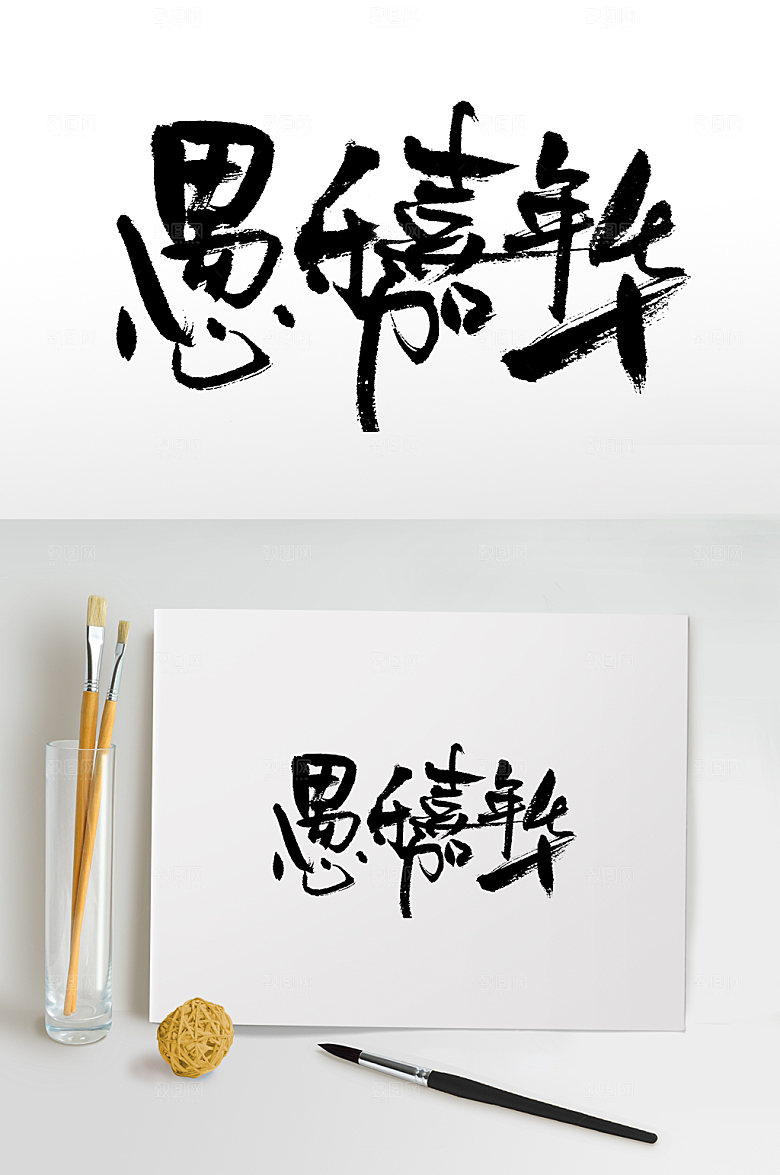 愚乐嘉年华
愚乐嘉年华